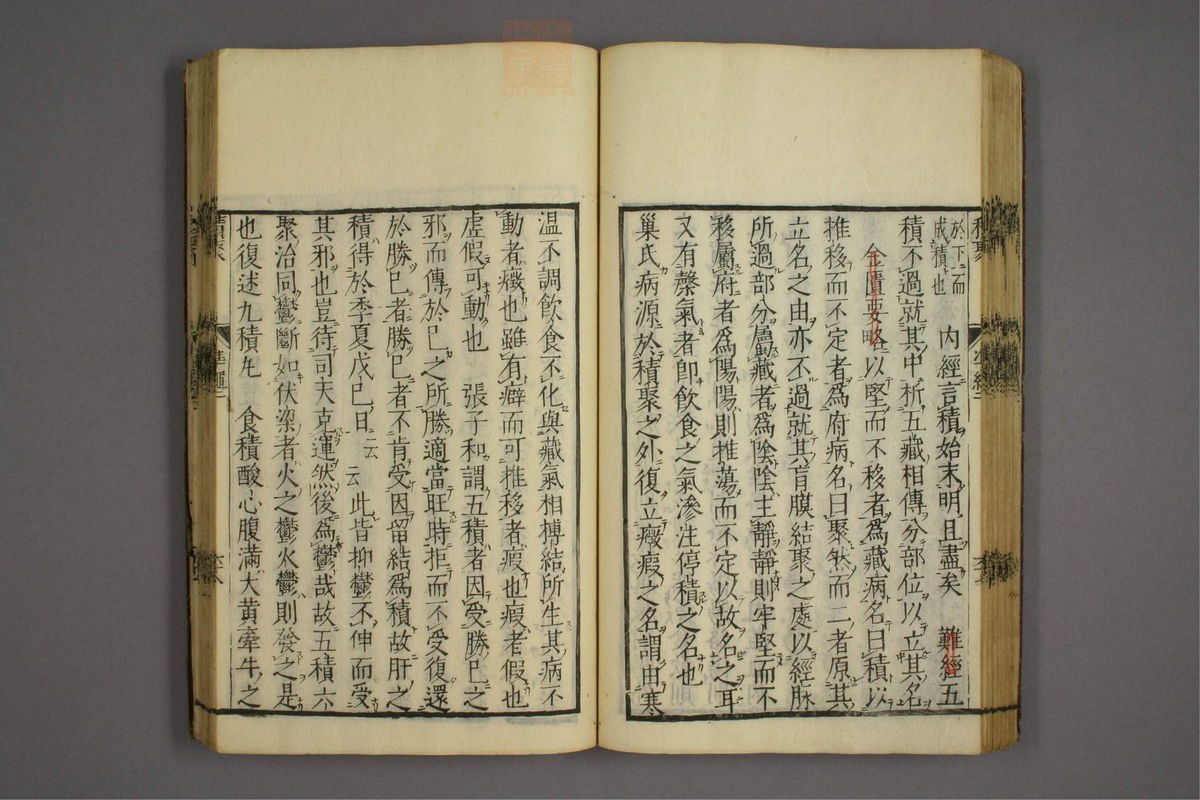 於下而
成積也　內經言積始末明且盡矣　難經五
積不過就其中析五藏相傳分部位以立其名
金匱要略以堅而不移者爲藏病名曰積以
推移而不定者爲府病名曰聚然而二者原其
立名之由亦不過就其肓膜結聚之處以經脉
所過部分屬藏者爲陰陰主靜靜則牢堅而不
移屬府者爲陽陽則推蕩而不定以故名之耳
又有槃氣者卽飲食之氣滲注停積之名也
巢氏病源於積聚之外復立癥瘕之名謂由寒
温不調飲食不化與藏氣相搏結所生其病不
動者癥也雖有癖而可推移者瘕也瘕者假也
虛假可動也　張子和謂五積者因受勝已之
邪而傳於已之所勝適當旺時拒而不受復還
於勝已者勝已者不肯受因留結爲積故肝之
積得於季夏戊已日云云此皆抑鬱不伸而受
其邪也豈待司天克運然後爲鬱哉故五積六
聚治同鬱斷如伏梁者火之鬱火鬱則發之是
也復述九積丸　食積酸心腹滿大黃牽牛之
積聚